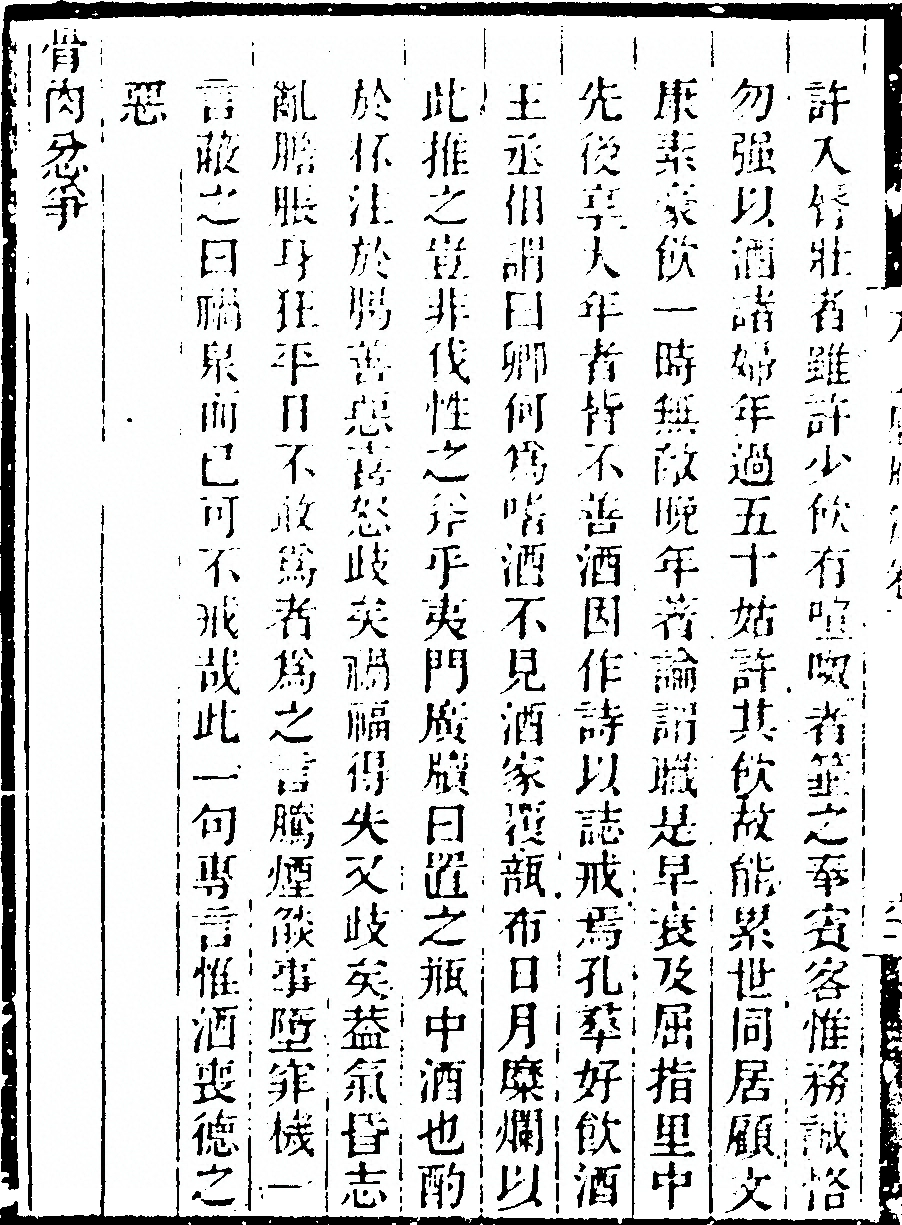 許入唇壯者雖許少飲有喧呶者箠之奉賓客惟務誠恪
勿强以酒諸婦年過五十姑許其飲故能累世同居顧文
康素豪飲一時無敵晚年著論謂職是早衰及屈指里中
先後享大年者皆不善酒因作詩以誌戒焉孔羣好飲酒
王丞相謂曰卿何爲嗜酒不見酒家覆瓿布日月糜爛以
此推之豈非伐性之斧乎夷門廣牘曰置之瓶中酒也酌
於杯注於腸善惡喜怒歧矣禍福得失又歧矣葢氣昏志
亂膽脹身狂平日不敢爲者爲之言騰煙燄事墮穽機一
言蔽之曰禍泉而已可不戒哉此一句專言惟酒喪德之
惡
骨肉忿爭